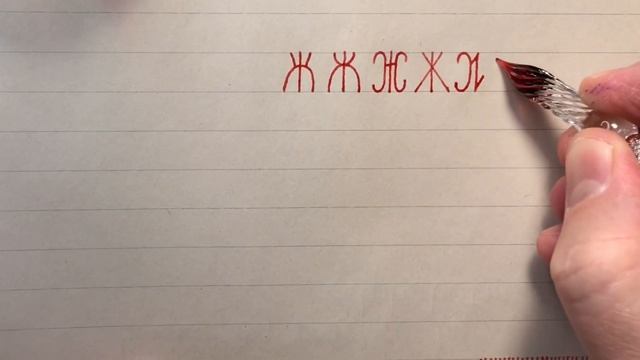 Ж Ж Ж Ж